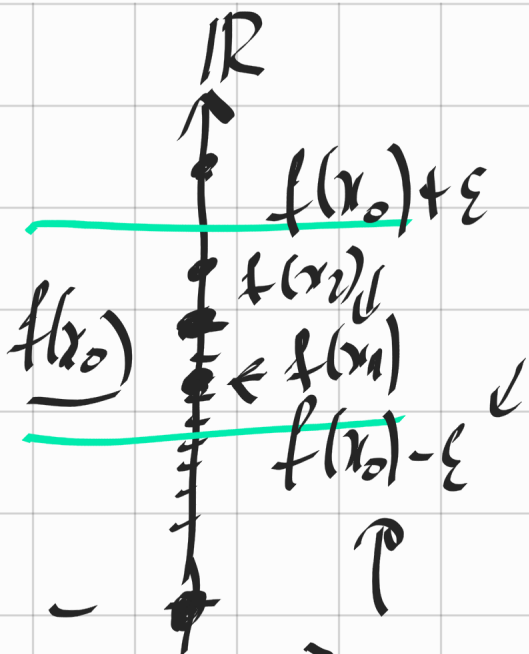 ℝ
f(x₀)+ε
f(x₂)
f(x₀)
f(x₁)
f(x₀)-ε